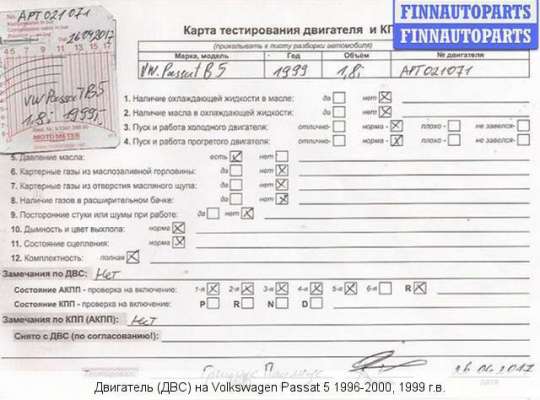 FINNAUTOPARTS
FINNAUTOPARTS
№ APT021071
26.04.2017
5 7 9 11 13 15 17
VW Passat B5
1.8i 1999г.
MOTOMETER
Карта тестирования двигателя и КП
(прикалывать к листу разборки автомобиля)
Марка, модель Год Объём № двигателя
VW. Passat B5 1999 1,8i APT021071
1. Наличие охлаждающей жидкости в масле: да нет
2. Наличие масла в охлаждающей жидкости: да нет
3. Пуск и работа холодного двигателя: отлично- норма - плохо - не завелся-
4. Пуск и работа прогретого двигателя: отлично- норма - плохо - не завелся-
5. Давление масла: есть нет
6. Картерные газы из маслозаливной горловины: да нет
7. Картерные газы из отверстия масляного щупа: да нет
8. Наличие газов в расширительном бачке: да нет
9. Посторонние стуки или шумы при работе: да нет
10. Дымность и цвет выхлопа: норма
11. Состояние сцепления: норма
12. Комплектность: полная
Замечания по ДВС: Нет
Состояние АКПП - проверка на включение: 1-я 2-я 3-я 4-я 5-я 6-я R
Состояние КПП - проверка на включение: P R N D
Замечания по КПП (АКПП): Нет
Снято с ДВС (по согласованию!):
дата
Двигатель (ДВС) на Volkswagen Passat 5 1996-2000, 1999 г.в.